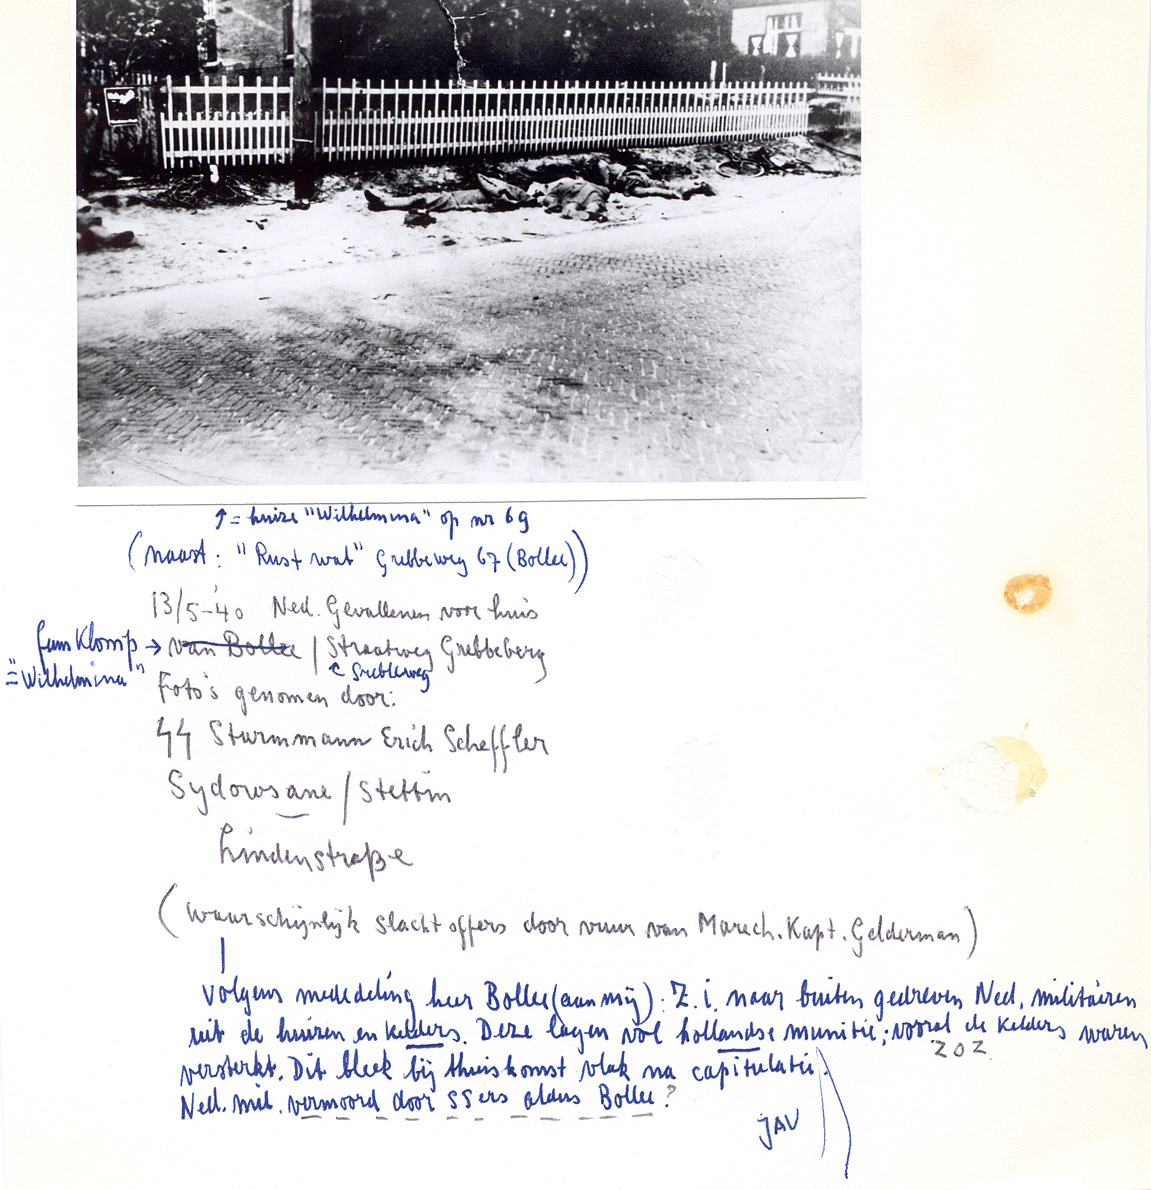 ↑ = huize "Wilhelmina" op nr 69
(naast: "Rust wat" Grebbeweg 67 (Bollee))
13/5-'40 Ned. Gevallenen voor huis
fam Klomp → van Bollee / Straatweg Grebbeberg
= "Wilhelmina" Grebbeweg
Foto's genomen door:
SS Sturmmann Erich Scheffler
Sydowsane / Stettin
Lindenstraße
(waarschijnlijk slachtoffers door vuur van Marech. Kapt. Gelderman)
Volgens mededeling heer Bollee (aan mij): Z.i. naar buiten gedreven Ned. militairen
uit de huizen en kelders. Deze lagen vol hollandse munitie; vooral de kelders waren
ZOZ.
versterkt. Dit bleek bij thuiskomst vlak na capitulatie.
Ned. mil. vermoord door SSers aldus Bollee?
JAV